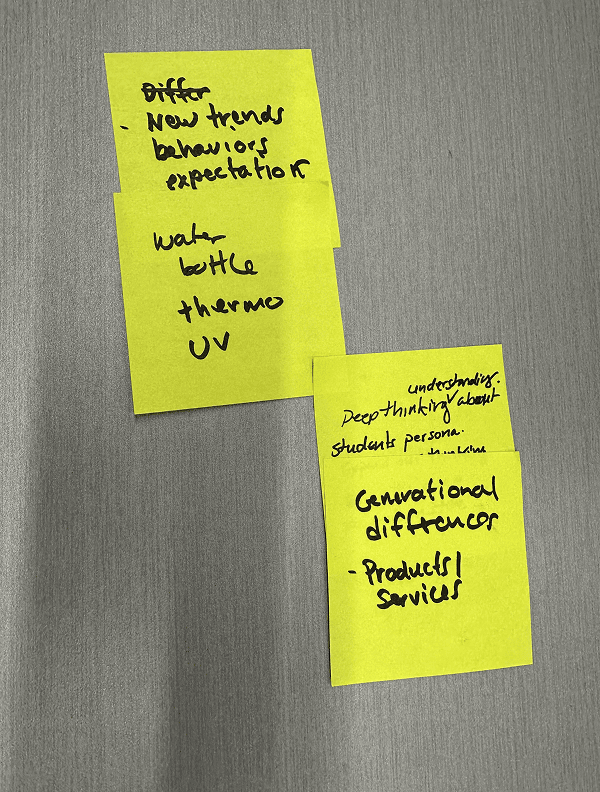 Differ
- New trends
behaviors
expectation
water
bottle
thermo
UV
understanding.
Deep thinking about
students persona.
thinking
Generational
differences
- Products/
services